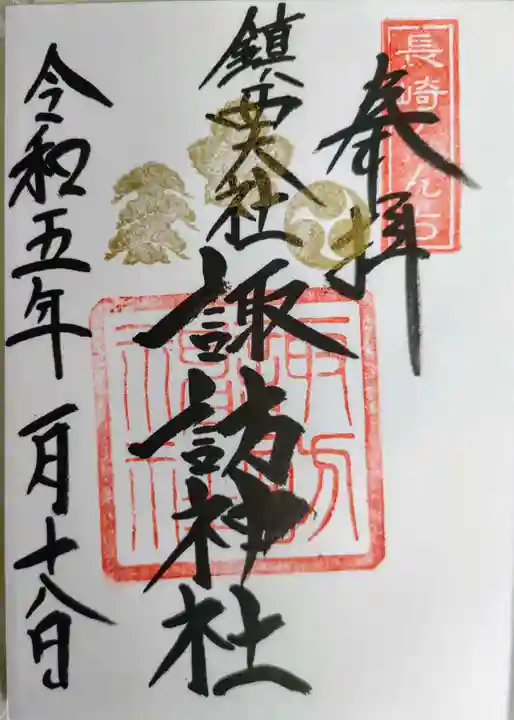 長崎くんち
奉拝
鎮西大社
諏訪神社
諏訪神社
令和五年一月十八日